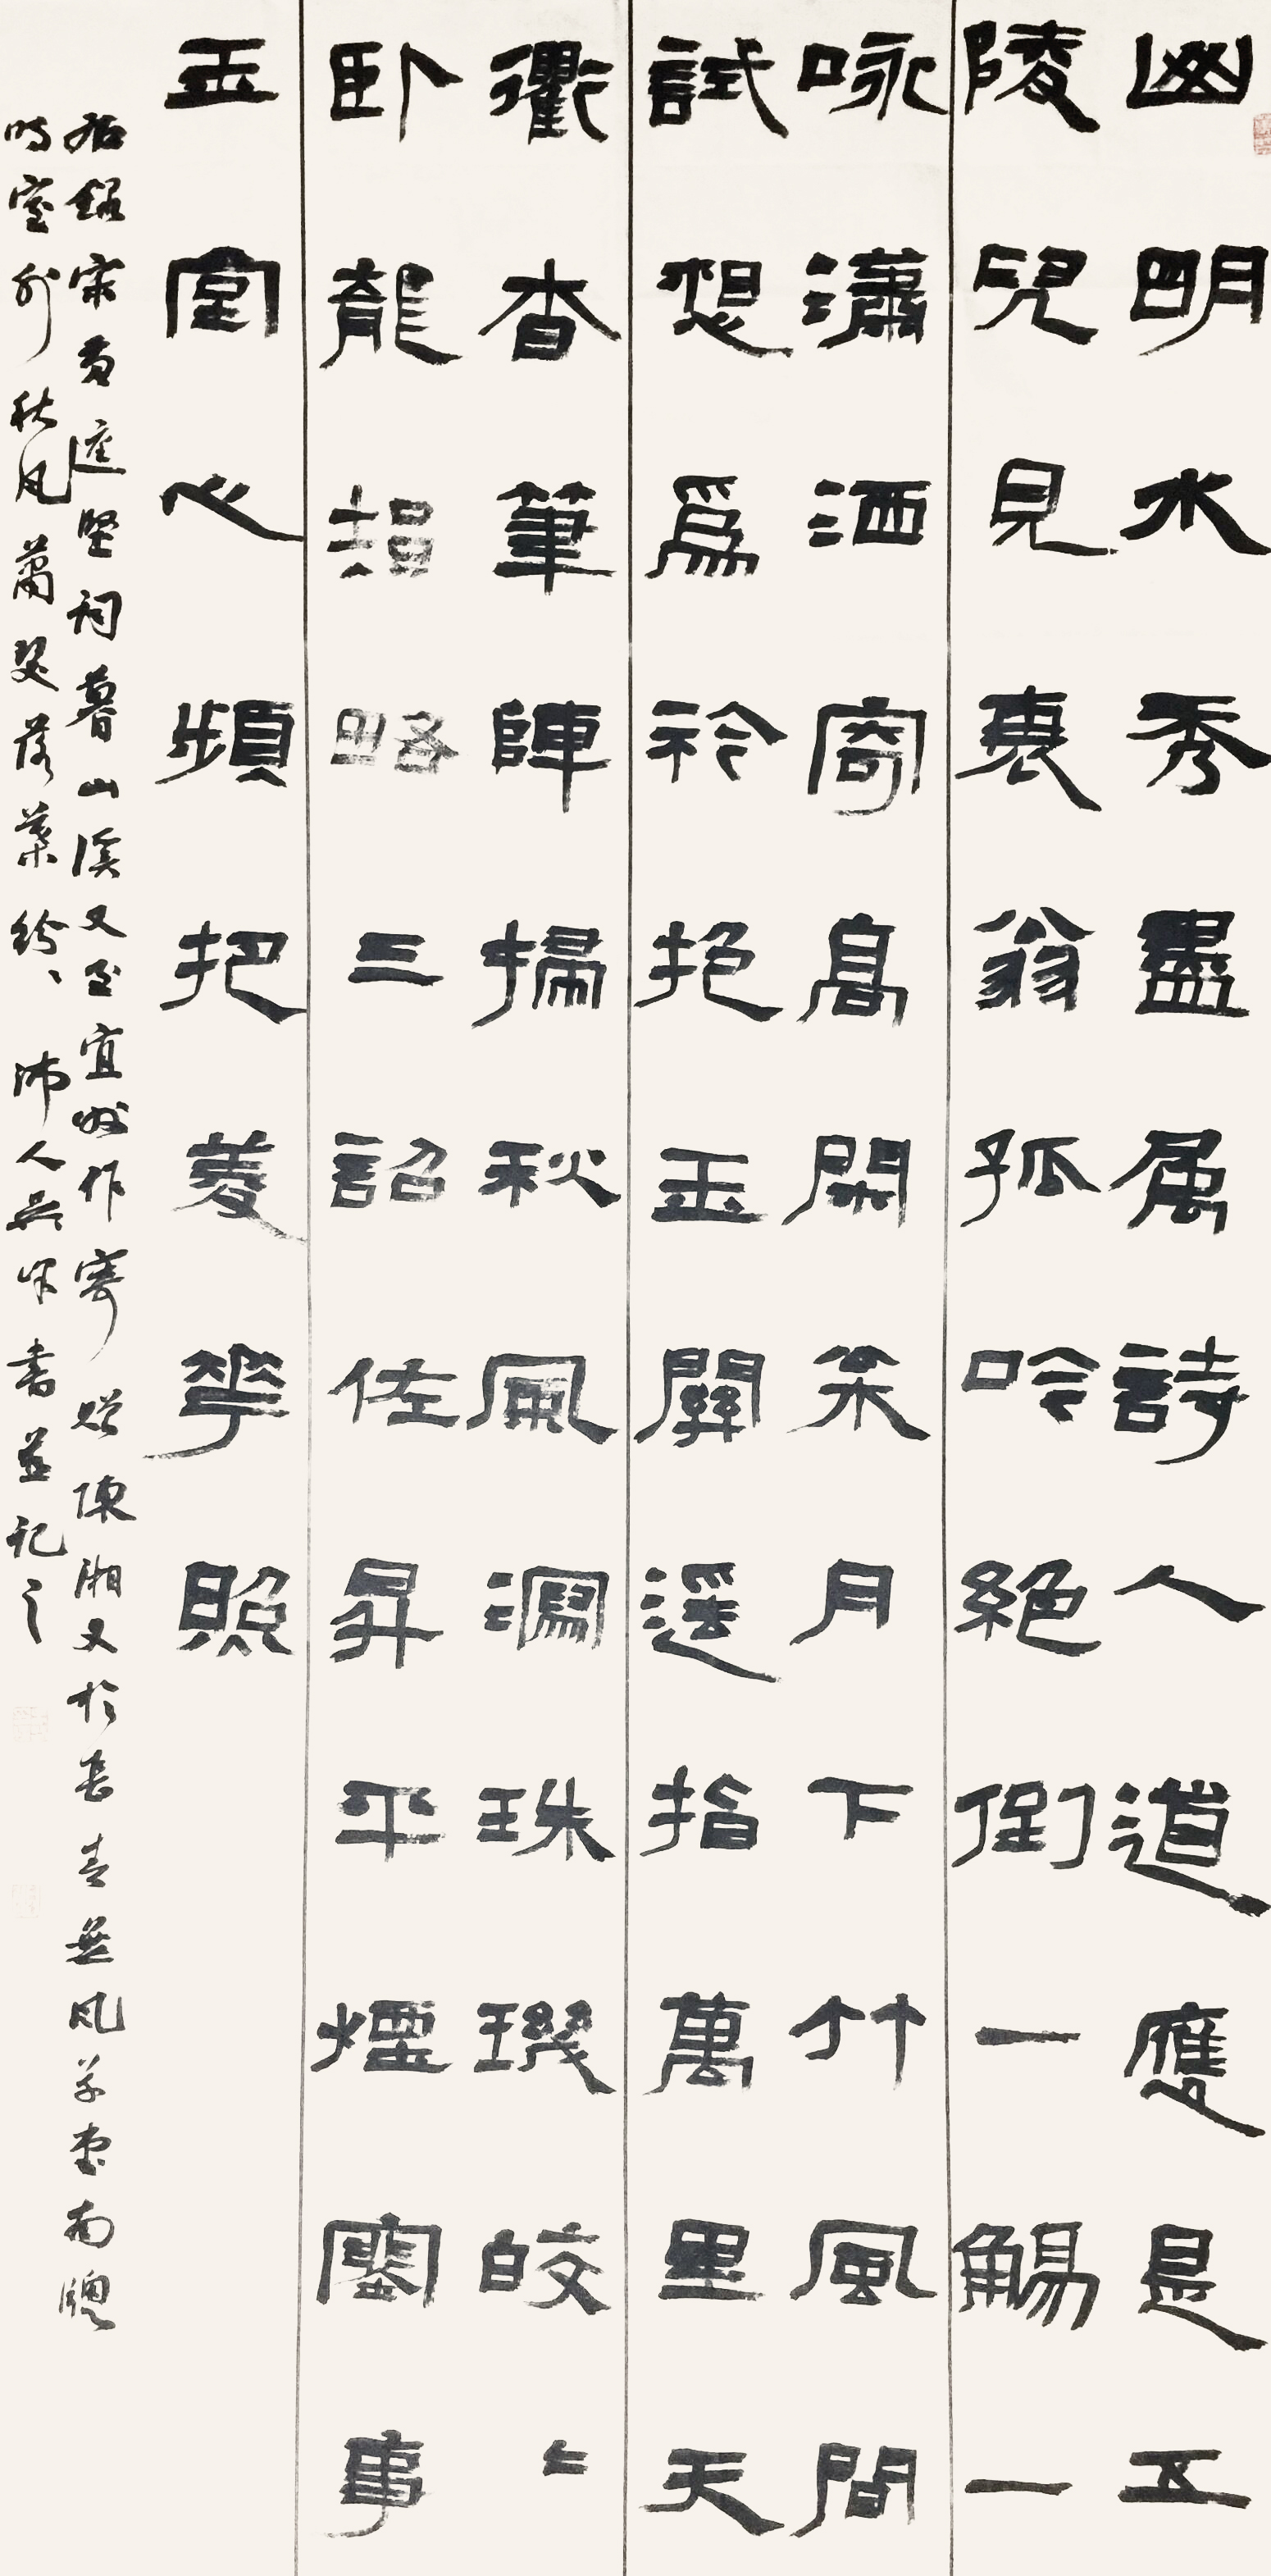 山明水秀盡属詩人道應是五
陵兒見衰翁孤吟絕倒一觴一
咏瀟洒寄高閑松月下竹風間
試想爲衿抱玉關遥指萬里天
衢杳筆陣掃秋風瀉珠璣皎〻
卧龍指略三詔佐昇平煙塞事
玉堂心頻把菱花照
右録宋黄庭堅詞暮山溪又至宜州作寄贈陳湘又於長春無風草堂南牕
時室外秋風蕭瑟落葉紛〻沛人吳書並記之